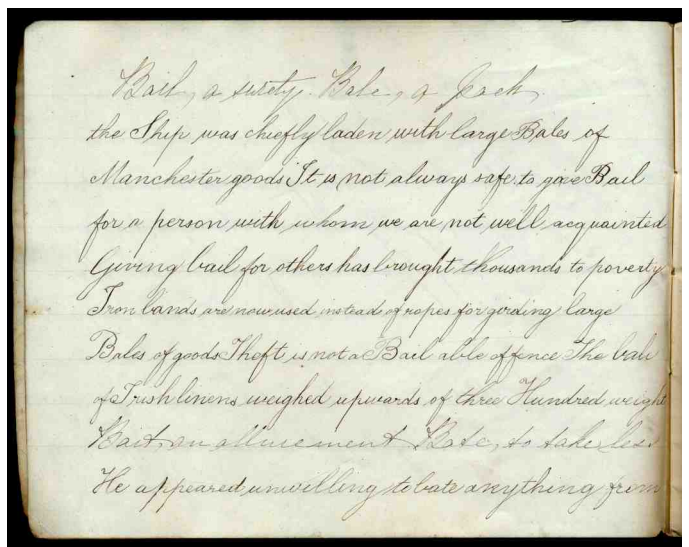 Bail, a surety. Bale, a Pack.
the Ship was chiefly laden with large Bales of
Manchester goods It is not always safe to give Bail
for a person with whom we are not well acquainted
Giving bail for others has brought thousands to poverty
Iron bands are now used instead of ropes for girding large
Bales of goods Theft is not a Bail able offence The bale
of Irish linens weighed upwards of three Hundred weight
Bait, an allurement Bate, to take less
He appeared unwilling to bate anything from